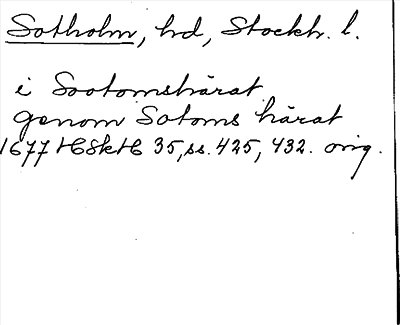 Sotholm, hd, Stockh. l.
i Sootomshärat
genom Sotoms härat
1677 HSkH 35, ss. 425, 432. orig.